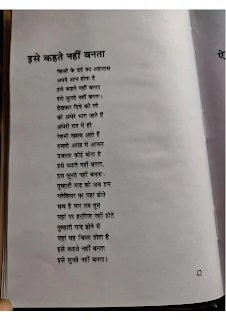 इसे कहते नहीं बनता
किसी के दर्द का अहसास
अपने आप होता है
इसे कहते नहीं बनता
इसे सुनते नहीं बनता।
देखकर दिये की लौ
को अंधेरे भाग जाते हैं
अंधेरी रात में ही
रेशमी ख्वाब आते हैं
हमारी आंख में आकर
उजाला कोई बोता है
इसे कहते नहीं बनता,
इसे सुनते नहीं बनता।
तुम्हारी याद को जब हम
यहां पर ढोते
सच है यार तब तुम
यहां पर हरगिज नहीं होते
तुम्हारी याद ढोने में
यहां यह जिस्म ढोता है
इसे कहते नहीं बनता
इसे सुनते नहीं बनता।